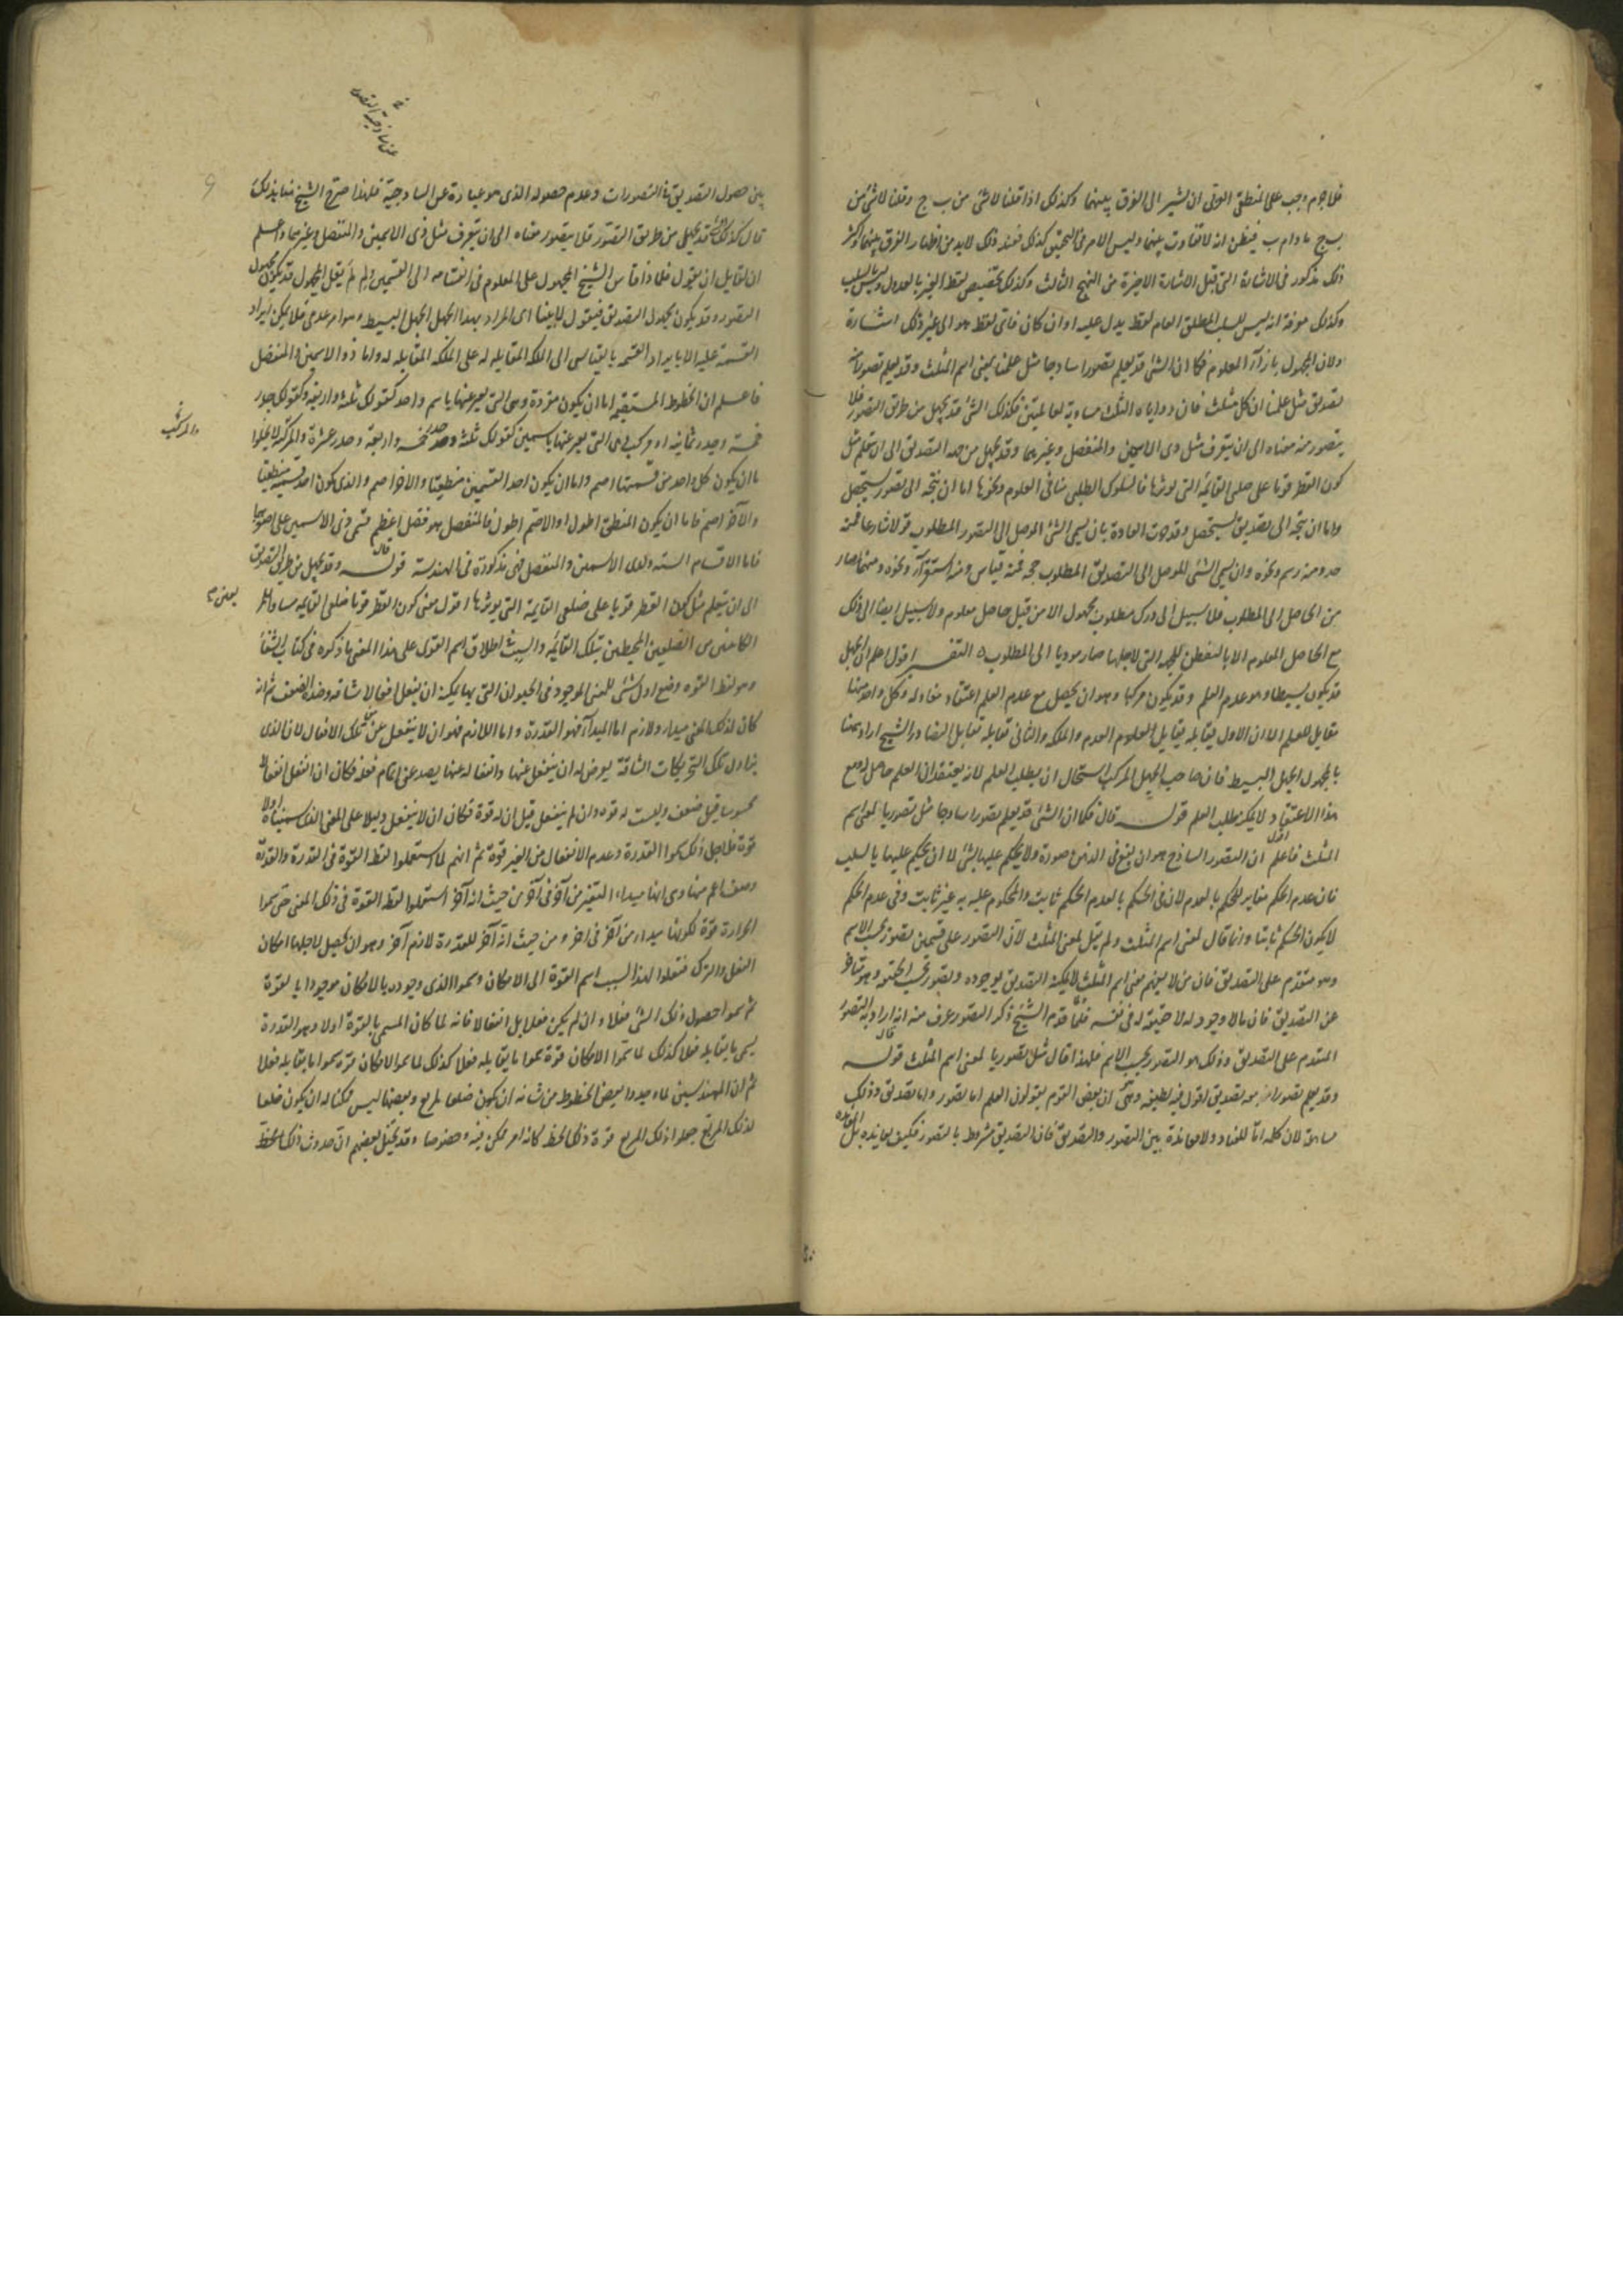 فلا جرم وجب على المنطقى ان يشير الى الفرق بينهما وكذلك اذا قلنا لا شئ من ب ج وقلنا لا شئ من
ب ج ما دام ب فيظن انه لا تفاوت بينهما وليس الامر فى التحقيق كذلك فعند ذلك لا بد من اظهار الفرق بينهما
ذلك مذكور فى الاشارة التى قبل الاشارة الاخيرة من النهج الثالث وكذلك تخصيص لفظ الغير بالعدول وليس بالسلب
وكذلك معرفة انه ليس للسلب المطلق العام لفظ يدل عليه او ان كان فاى لفظ هو الى غير ذلك اشارة
ولان المجهول بازآء المعلوم فكما ان الشئ قد يعلم تصورا ساذجا مثل علمنا بمعنى اسم المثلث وقد يعلم تصورا معه
تصديق مثل علمنا ان كل مثلث فان زواياه الثلث مساوية لقائمتين فكذلك الشئ قد يجهل من طريق التصور فلا
يتصور منه معناه الى ان يتعرف مثل ذى الاسمين والمنفصل وغيرهما وقد يجهل من جهة التصديق الى ان يتعلم مثل
كون القطر قويا على ضلعى القائمة التى يوترها فالسلوك الطلبى منا فى العلوم ونحوها اما ان يتجه الى تصور يستحصل
واما ان يتجه الى تصديق يستحصل وقد جرت العادة بان يسمى الشئ الموصل الى التصور المطلوب قولا شارحا فمنه
حد ومنه رسم ونحوه وان يسمى الشئ الموصل الى التصديق المطلوب حجة فمنه قياس ومنه استقرآء ونحوه ومنهما يصار
من الحاصل الى المطلوب فلا سبيل الى درك مطلوب مجهول الا من قبل حاصل معلوم ولا سبيل ايضا الى ذلك
مع الحاصل المعلوم الا بالتفطن للجهة التى لاجلها صار موديا الى المطلوب التفسير اقول اعلم ان الجهل
قد يكون بسيطا وهو عدم العلم وقد يكون مركبا وهو ان يحصل مع عدم العلم اعتقاد مضاد له وكل واحد منهما
مقابل للعلم الا ان الاول يقابله تقابل العدم والملكة والثانى تقابله تقابل التضاد والشيخ اراد ههنا
بالمجهول الجهل البسيط فان صاحب الجهل المركب استحال ان يطلب العلم لانه يعتقد ان العلم حاصل له ومع
هذا الاعتقاد لا يمكنه طلب العلم قوله قال فكما ان الشئ قد يعلم تصورا ساذجا مثل تصورنا لمعنى اسم
المثلث فاعلم ان التصور الساذج هو ان يقع فى الذهن صورة ولا يحكم عليها بشئ لا ان يحكم عليها بالسلب
فان عدم الحكم مغاير للحكم بالعدم لان فى الحكم بالعدم الحكم ثابت والمحكوم عليه به غير ثابت وفى عدم الحكم
لا يكون الحكم ثابتا وانما قال لمعنى اسم المثلث ولم يقل لمعنى المثلث لان التصور على قسمين تصور بحسب الاسم
وهو متقدم على التصديق فان من لا يفهم معنى اسم المثلث لا يمكنه التصديق بوجوده وتصور بحسب الحقيقة وهو متاخر
عن التصديق فان ما لا وجود له لا حقيقة له فى نفسه فلما قدم الشيخ ذكر التصور عرف منه انه اراد به التصور
المتقدم على التصديق وذلك هو التصور بحسب الاسم فلهذا قال مثل تصورنا لمعنى اسم المثلث قوله قال
وقد يعلم تصورا معه تصديق اقول فيه لطيفة وهى ان بعض القوم يقولون العلم اما تصور واما تصديق وذلك
مسامحة لان كلمة اما للعناد ولا معاندة بين التصور والتصديق فان التصديق مشروط بالتصور فكيف يعانده بل المعاندة
بين حصول التصديق فى التصورات وعدم حصوله الذى هو عبارة عن الساذجية فلهذا صرح الشيخ هنا بذلك
قال كذلك الشئ قد يجهل من طريق التصور فلا يتصور معناه الى ان يتعرف مثل ذى الاسمين والمنفصل وغيرهما واعلم
ان لقايل ان يقول فلماذا قاس الشيخ المجهول على المعلوم فى انقسامه الى القسمين ولم لم يقل المجهول قد يكون مجهول
التصور وقد يكون مجهول التصديق فيقول لانا بينا ان المراد بهذا الجهل الجهل البسيط وهو امر عدمى فلا يمكن ايراد
القسمة عليه الا بايراد القسمة بالقياس الى الملكة المقابلة له على الملكة المقابلة له واما ذو الاسمين والمنفصل
فاعلم ان الخطوط المستقيمة اما ان يكون مفردة وهى التى يعبر عنها باسم واحد كقولك ثلثة واربعة وكقولك جذر
خمسة وجذر ثمانية او مركب وهى التى يعبر عنها باسمين كقولك ثلثة وجذر خمسة واربعة وجذر عشرة والمركب لا يخلوا
اما ان يكون كل واحد من قسميها اصم واما ان يكون احد القسمين منطقا والاخر اصم والذى يكون احد قسميه منطقا
والآخر اصم فاما ان يكون المنطق اطول او الاصم اطول فالمنفصل هو فضل اعظم قسمى ذى الاسمين على اصغرهما
فاما الاقسام الستة لذى الاسمين والمنفصل فهى مذكورة فى الهندسة قوله قال وقد يجهل من طريق التصديق
الى ان يتعلم مثل كون القطر قويا على ضلعى القايمة التى يوترها اقول معنى كون القطر قويا ضلعى القايمة مساو
الكائنين من الضلعين المحيطين بتلك القائمة والسبب اطلاق اسم القوة على هذا المعنى ما ذكره فى كتاب الشفآ
وهو لفظ القوة وضع اول شئ للمعنى الموجود فى الحيوان التى بها يمكنه ان يفعل افعالا شاقة وضده الضعف ثم انه
كان لذلك المعنى مبدا ولازم اما المبدأ فهو القدرة واما اللازم فهو ان لا ينفعل عن تلك الافعال لان الذى
يزاول تلك التحريكات الشاقة يعرض له ان ينفعل عنها وانفعاله عنها يصده عن اتمام فعله فكان ان انفعل انفعالا
محسوسا قيل ضعف وليست له قوة وان لم ينفعل قيل ان له قوة فكان ان لا ينفعل دليلا على المعنى الذى سميناه اولا
قوة فلاجل ذلك سموا القدرة وعدم الانفعال من الغير قوة ثم انهم لما استعملوا لفظ القوة فى القدرة والقدرة
وصف اعم منها وهى انها مبداء التغير من آخر فى آخر من حيث انه آخر استعملوا لفظ القوة فى ذلك المعنى حتى سموا
الحرارة قوة لكونها مبداء من آخر فى اخر ومن حيث انه آخر للقدرة لازم آخر وهو ان يحصل لاجلها امكان
الفعل والترك فنقلوا لهذا السبب اسم القوة الى الامكان وسموا الذى وجوده بالامكان موجودا بالقوة
ثم سموا حصول ذلك الشئ فعلا وان لم يكن فعلا بل انفعالا فانه لما كان المسمى بالقوة اولا وهو القدرة
يسمى ما يقابله فعلا كذلك لما سموا الامكان قوة سموا ما يقابله فعلا كذلك لما سموا الامكان قوة سموا ما يقابله فعلا
ثم ان المهندسين لما وجدوا بعض الخطوط من شانه ان يكون ضلعا لمربع وبعضها ليس ممكنا له ان يكون ضلعا
لذلك المربع جعلوا ذلك المربع قوة ذلك الخط كانه امر ممكن فيه وخصوصا وقد تخيل بعضهم ان حدوث ذلك الخط
والمركب
يعنى